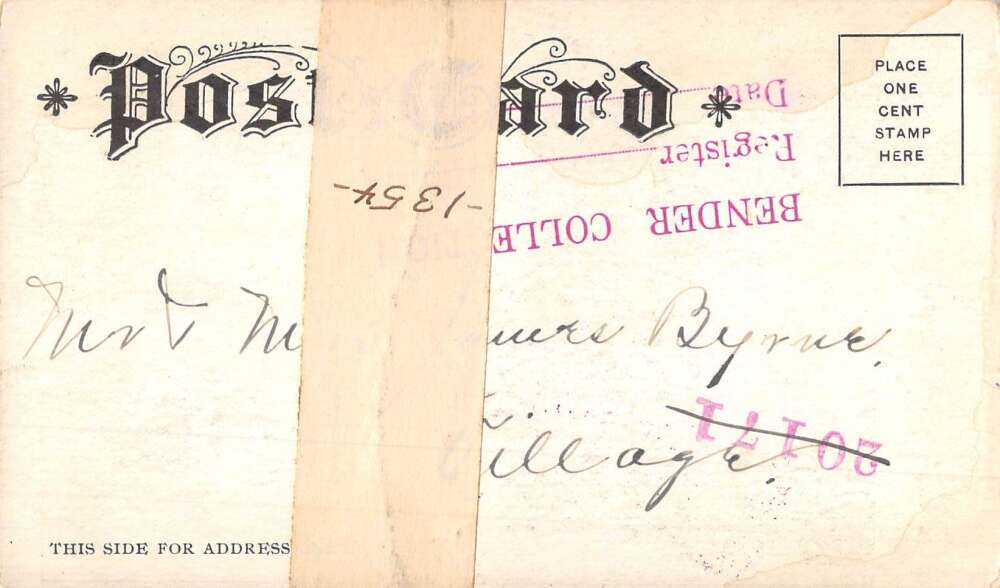 Post ard
PLACE
ONE
CENT
STAMP
HERE
Date
Register
BENDER COLLECTION
-1354-
Mr & M mes Byrne.
Village.
20171
THIS SIDE FOR ADDRESS